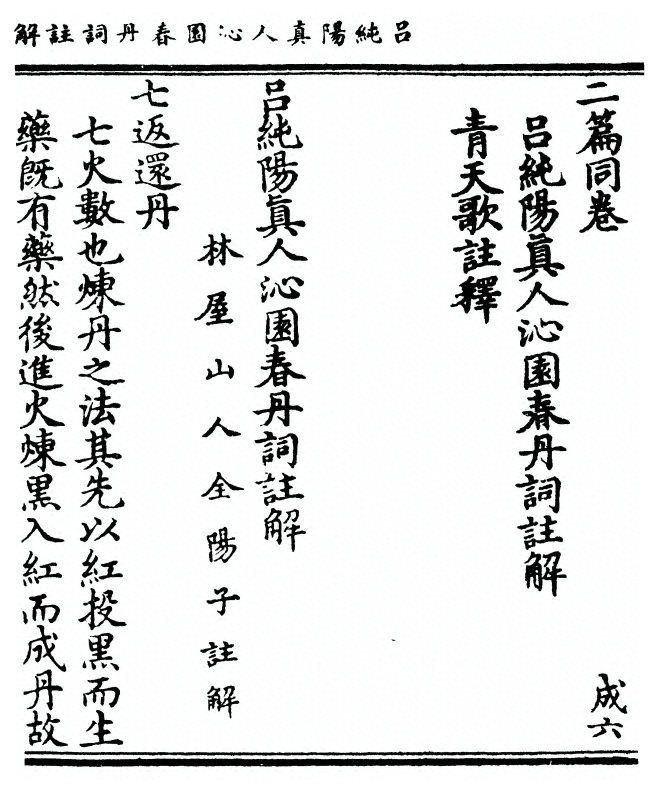 呂純陽真人沁園春丹詞註解
二篇同卷
成六
呂純陽眞人沁園春丹詞註解
青天歌註釋
呂純陽眞人沁園春丹詞註解
林屋山人全陽子註解
七返還丹
七火數也煉丹之法其先以紅投黑而生
藥旣有藥然後進火煉黑入紅而成丹故